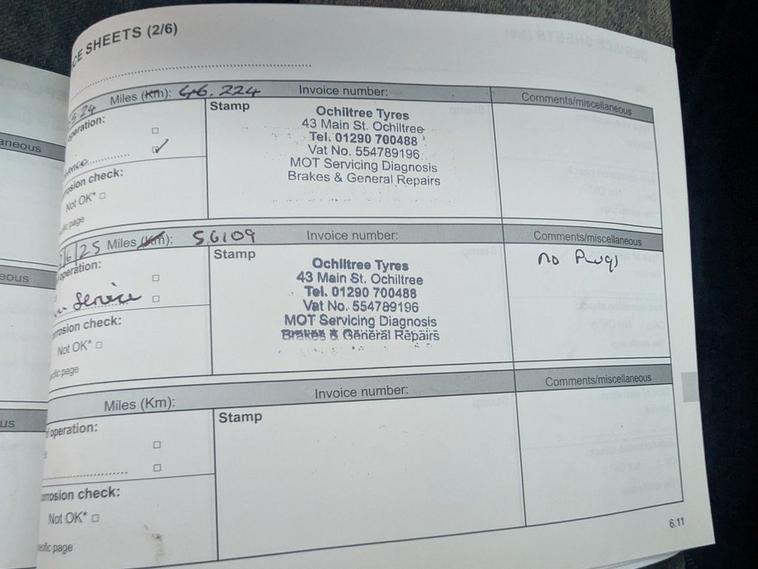 CE SHEETS (2/6)
6.24 Miles (Km): 46,224 Invoice number: Comments/miscellaneous
Stamp
Ochiltree Tyres
43 Main St. Ochiltree
Tel. 01290 700488
Vat No. 554789196
MOT Servicing Diagnosis
Brakes & General Repairs
operation:
osion check:
Not OK*
page
aneous
6/25 Miles (Km): 56109 Invoice number: Comments/miscellaneous
Stamp
no Plugs
Ochiltree Tyres
43 Main St. Ochiltree
Tel. 01290 700488
Vat No. 554789196
MOT Servicing Diagnosis
Brakes & General Repairs
operation:
Service
rosion check:
Not OK*
page
eous
Miles (Km): Invoice number: Comments/miscellaneous
Stamp
operation:
rosion check:
Not OK*
page
us
6.11